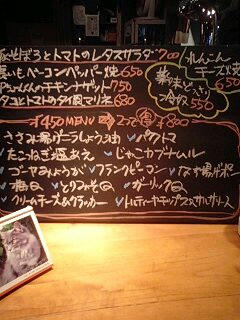 豚そぼろとトマトのレタスサラダ 700
長いもベーコンペッパー焼 650
Pちゃんのチキンナゲット 750
タコとトマトのタイ風マリネ 680
れんこんチーズ焼 650
薬味どっさり冷奴 550
オ450MENU 2つで ¥800
ささみ揚げニラしょう油 ✓パクトマ
✓たこねぎ塩あえ ✓じゃこカブナムル
✓ゴーヤみょうが ✓フランクピーコン ✓なす揚げポン
✓梅Q ✓とりみそQ ✓ガーリックQ
✓クリームチーズ&クラッカー ✓トルティーヤチップスwサルサソース